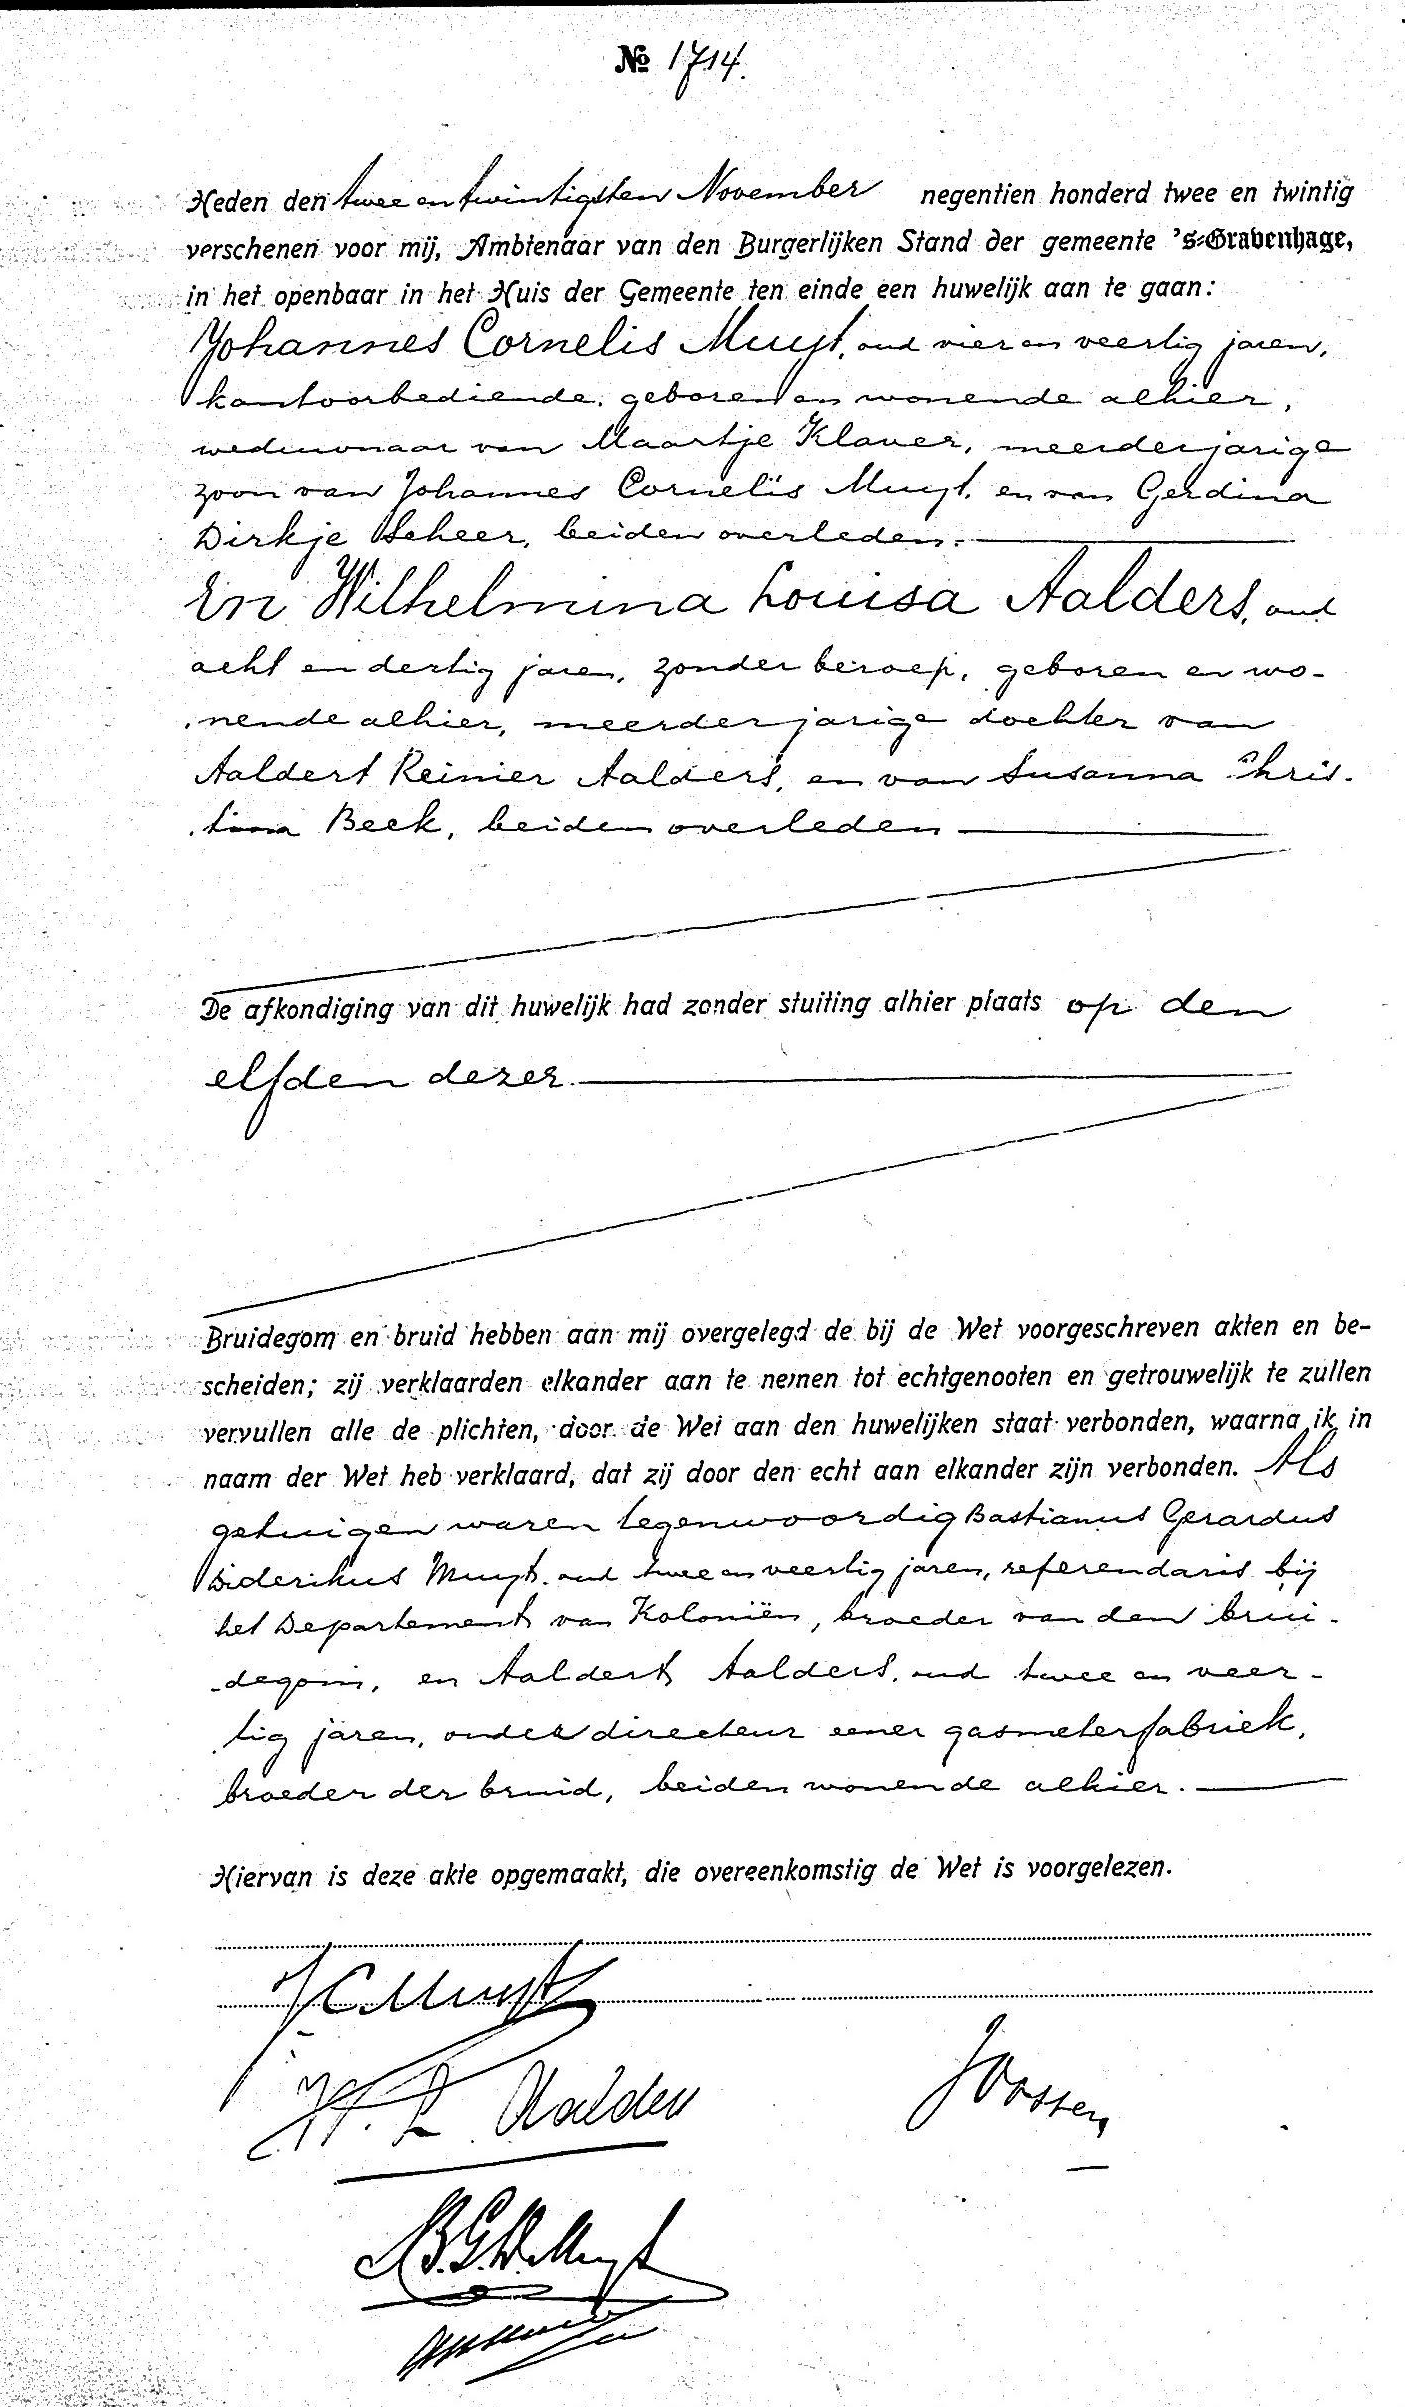 № 1714.
Heden den twee en twintigsten November negentien honderd twee en twintig
verschenen voor mij, Ambtenaar van den Burgerlijken Stand der gemeente 's-Gravenhage,
in het openbaar in het Huis der Gemeente ten einde een huwelijk aan te gaan:
Johannes Cornelis Muyt, oud vier en veertig jaren,
kantoorbediende, geboren en wonende alhier,
weduwnaar van Maartje Klaver, meerderjarige
zoon van Johannes Cornelis Muyt, en van Gerdina
Dirkje Scheer, beiden overleden.
En Wilhelmina Louisa Aalders, oud
acht en dertig jaren, zonder beroep, geboren en wo-
nende alhier, meerderjarige dochter van
Aaldert Reinier Aalders, en van Susanna Chris-
tina Beek, beiden overleden
De afkondiging van dit huwelijk had zonder stuiting alhier plaats op den
elfden dezer.
Bruidegom en bruid hebben aan mij overgelegd de bij de Wet voorgeschreven akten en be-
scheiden; zij verklaarden elkander aan te nemen tot echtgenooten en getrouwelijk te zullen
vervullen alle de plichten, door de Wet aan den huwelijken staat verbonden, waarna ik in
naam der Wet heb verklaard, dat zij door den echt aan elkander zijn verbonden. Als
getuigen waren tegenwoordig Bastianus Gerardus
Diderikus Muyt, oud twee en veertig jaren, referendaris bij
het Departement van Koloniën, broeder van den brui-
degom, en Aaldert Aalders, oud twee en veer-
tig jaren, onderdirecteur eener gasmeterfabriek,
broeder der bruid, beiden wonende alhier.
Hiervan is deze akte opgemaakt, die overeenkomstig de Wet is voorgelezen.
J C Muyt
W. L Aalders
B. G. D. Muyt